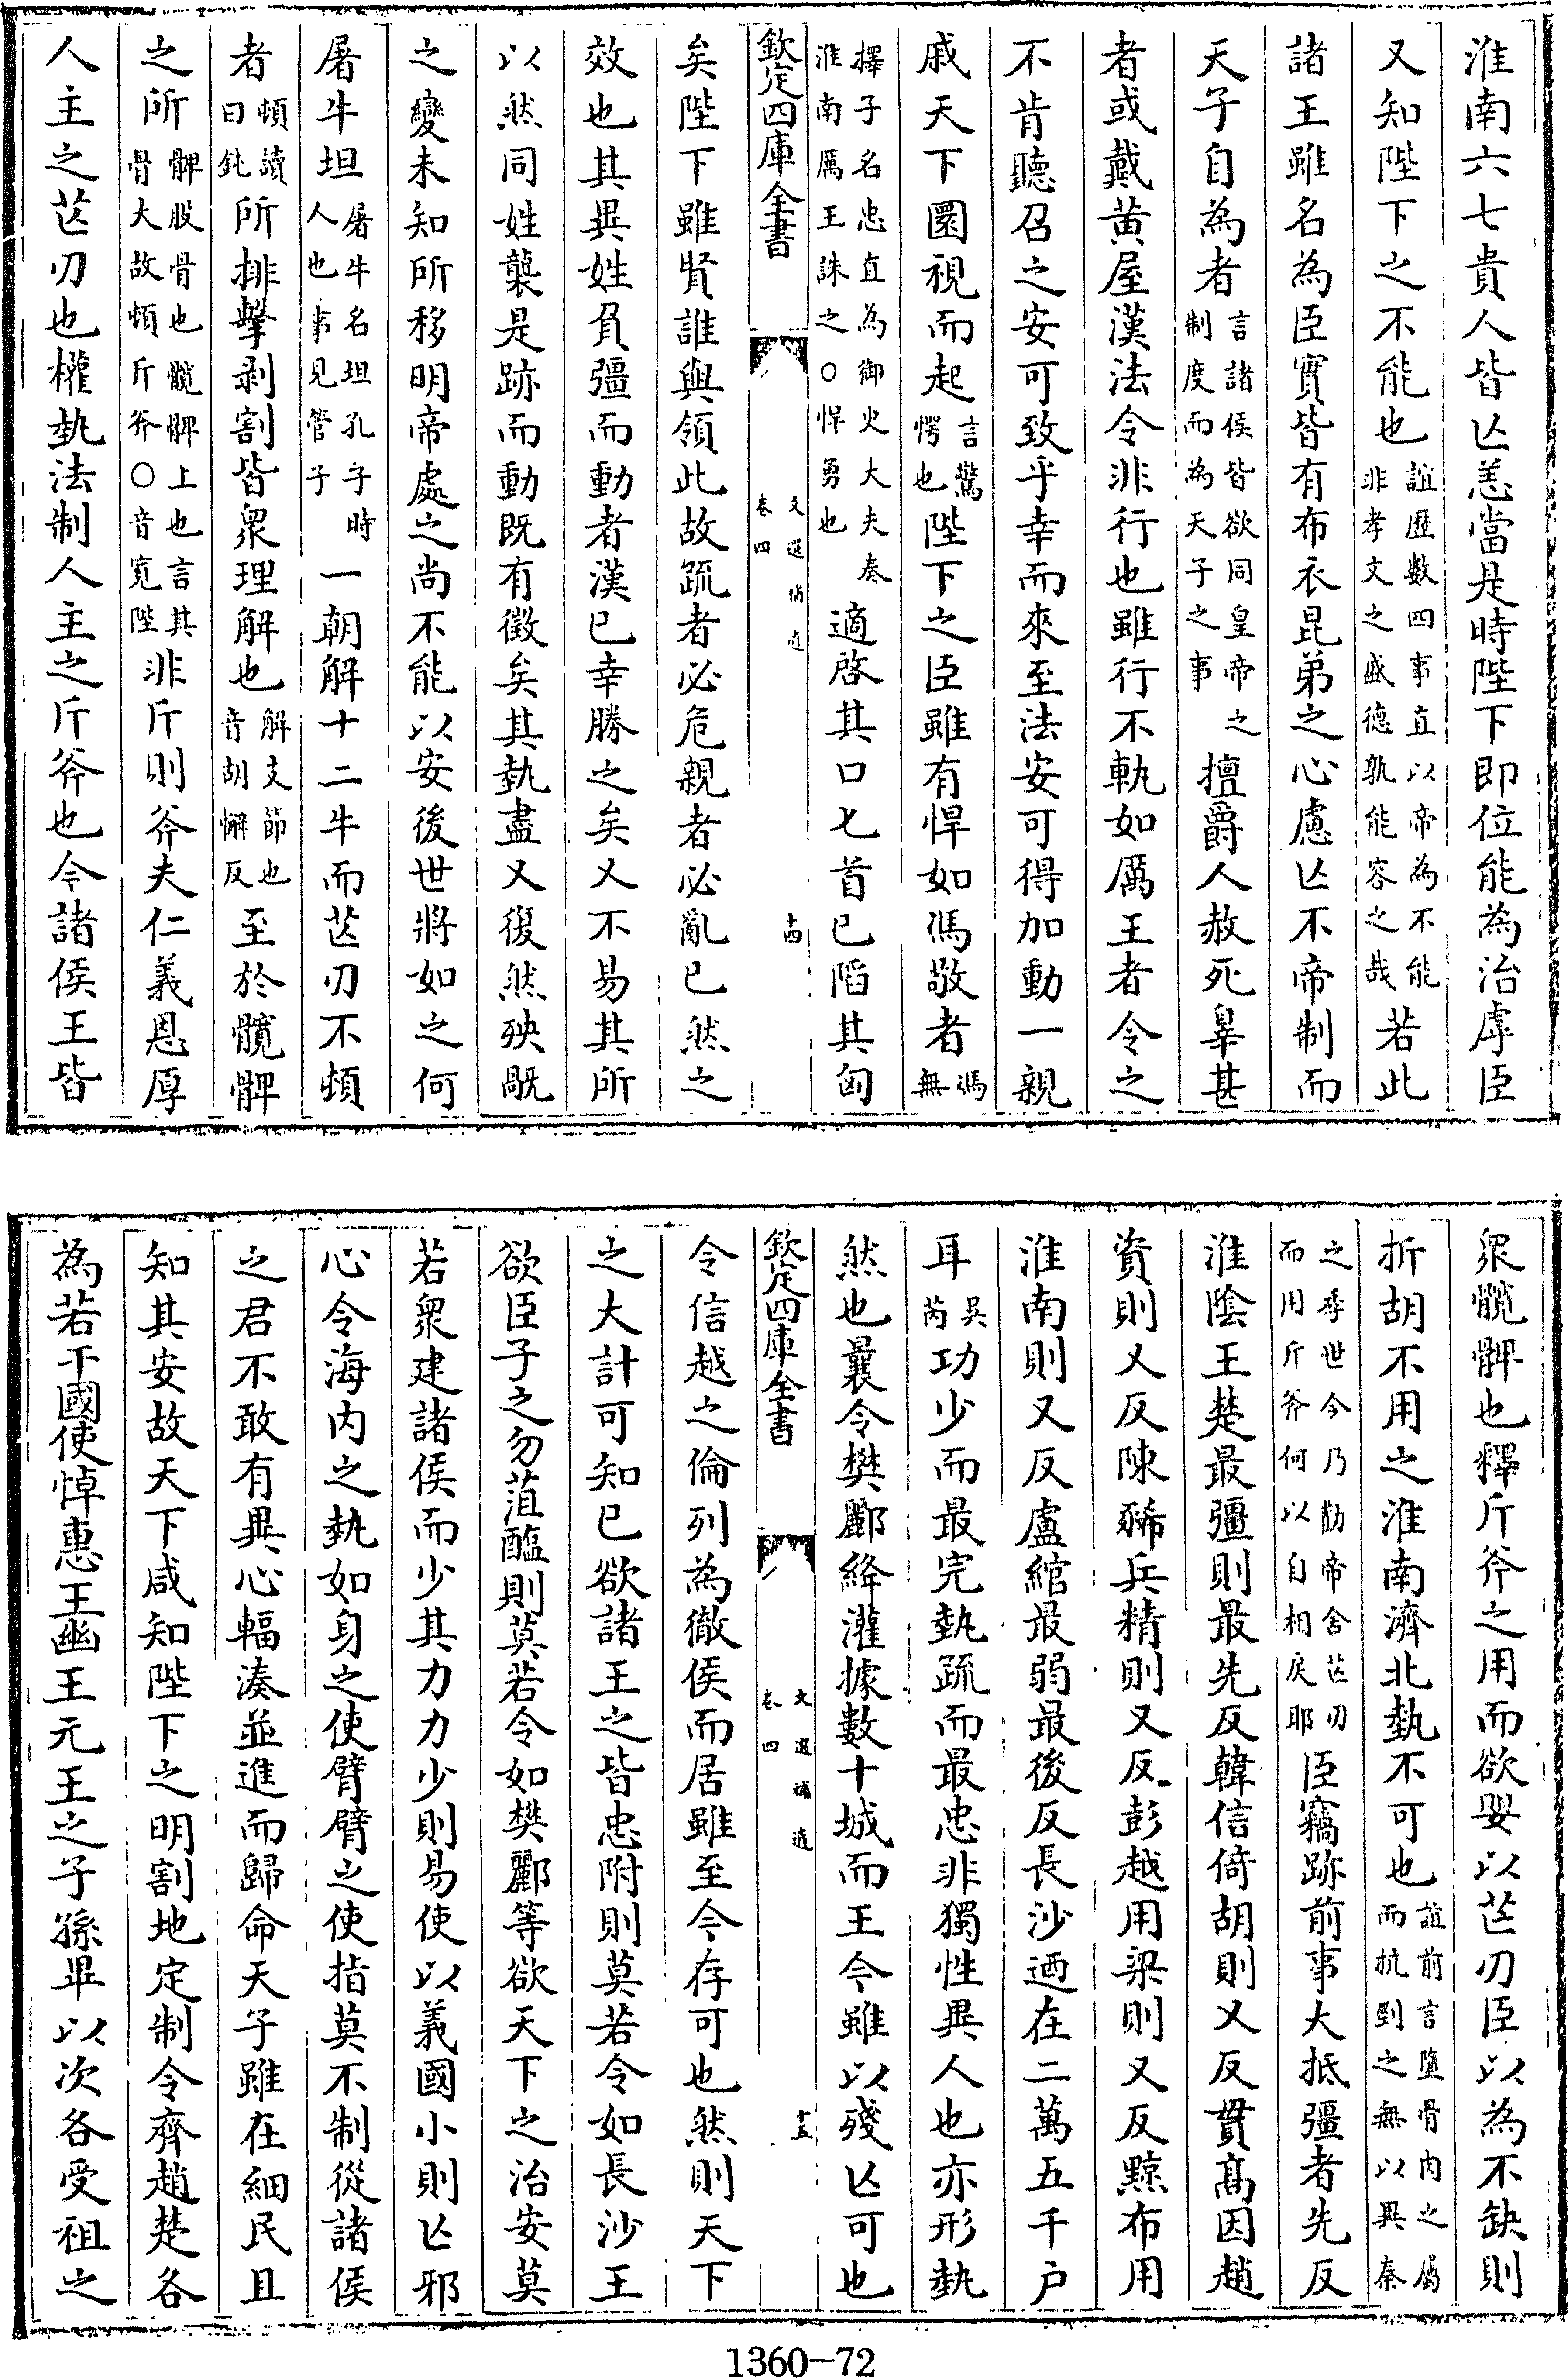 淮南六七貴人皆亾恙當是時陛下即位能為治虖臣
又知陛下之不能也誼歴數四事直以帝為不能非孝文之盛德孰能容之哉若此
諸王雖名為臣實皆有布衣昆弟之心慮亾不帝制而
天子自為者言諸侯皆欲同皇帝之制度而為天子之事擅爵人赦死辠甚
者或戴黄屋漢法令非行也雖行不軌如厲王者令之
不肯聽召之安可致乎幸而來至法安可得加動一親
戚天下圜視而起言驚愕也陛下之臣雖有悍如馮敬者馮無
擇子名忠直為御史大夫奏淮南厲王誅之○悍勇也適啓其口匕首已陷其匈
欽定四庫全書
文選補遺
卷四
十四
矣陛下雖賢誰與領此故疏者必危親者必亂已然之
效也其異姓負彊而動者漢已幸勝之矣又不易其所
以然同姓襲是跡而動既有徵矣其埶盡又復然殃旤
之變未知所移明帝處之尚不能以安後世將如之何
屠牛坦屠牛名坦孔子時人也事見管子一朝解十二牛而芒刃不頓
者頓讀曰鈍所排擊剥割皆衆理解也解支節也音胡懈反至於髖髀
之所髀股骨也髖髀上也言其骨大故頓斤斧○音寛陛非斤則斧夫仁義恩厚
人主之芒刃也權埶法制人主之斤斧也今諸侯王皆
衆髖髀也釋斤斧之用而欲嬰以芒刃臣以為不缺則
折胡不用之淮南濟北埶不可也誼前言墮骨肉之屬而抗剄之無以異秦
之季世今乃勸帝舍芒刃而用斤斧何以自相戾耶臣竊跡前事大抵彊者先反
淮陰王楚最彊則最先反韓信倚胡則又反貫高因趙
資則又反陳豨兵精則又反彭越用梁則又反黥布用
淮南則又反盧綰最弱最後反長沙迺在二萬五千户
耳吳芮功少而最完埶疏而最忠非獨性異人也亦形埶
然也曩令樊酈絳灌據數十城而王今雖以殘亾可也
欽定四庫全書
文選補遺
卷四
十五
令信越之倫列為徹侯而居雖至今存可也然則天下
之大計可知已欲諸王之皆忠附則莫若令如長沙王
欲臣子之勿菹醢則莫若令如樊酈等欲天下之治安莫
若衆建諸侯而少其力力少則易使以義國小則亾邪
心令海内之埶如身之使臂臂之使指莫不制從諸侯
之君不敢有異心輻湊並進而歸命天子雖在細民且
知其安故天下咸知陛下之明割地定制令齊趙楚各
為若干國使悼惠王幽王元王之子孫畢以次各受祖之
1360-72